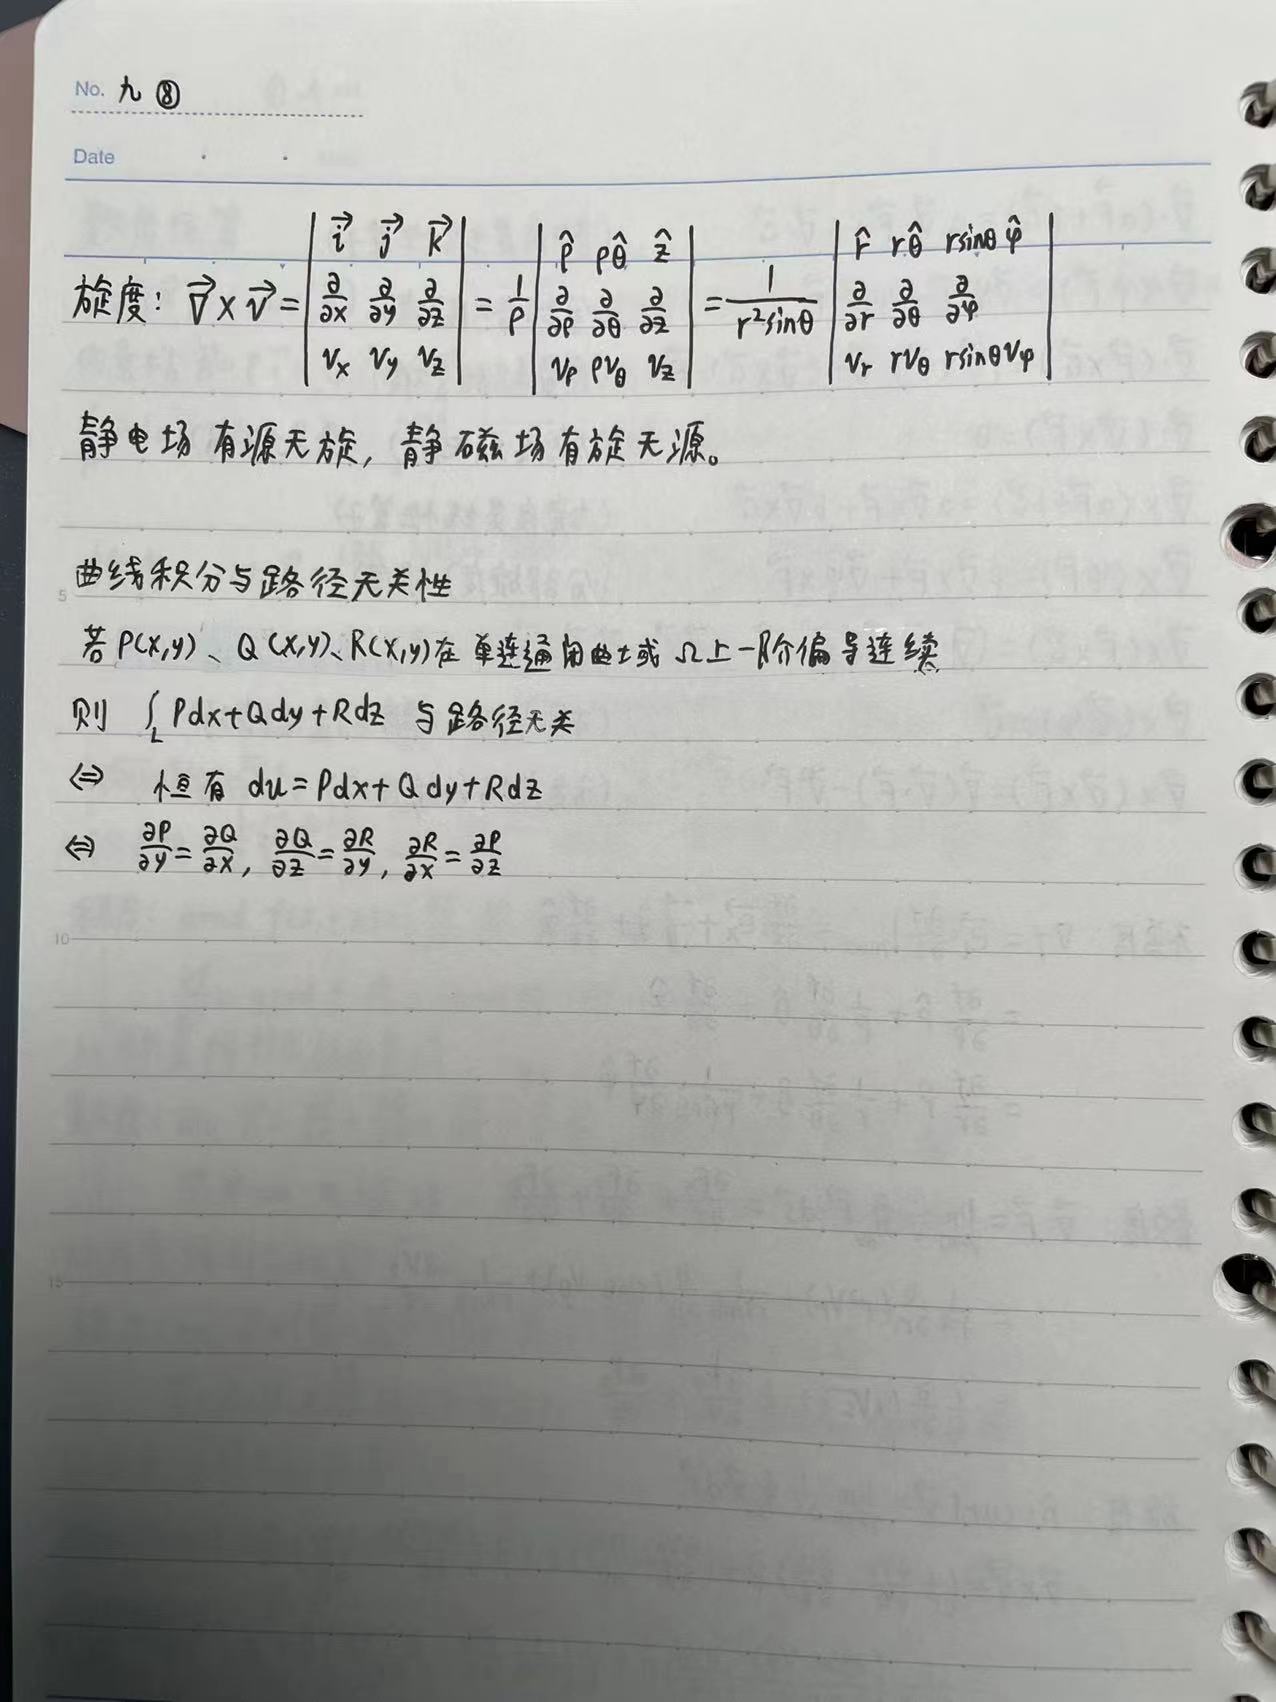 No. 九 ⑧
Date
旋度: ∇⃗×v⃗ = | i⃗ j⃗ k⃗ ; ∂/∂x ∂/∂y ∂/∂z ; Vx Vy Vz | = 1/ρ | ρ̂ ρθ̂ ẑ ; ∂/∂ρ ∂/∂θ ∂/∂z ; Vρ ρVθ Vz | = 1/(r²sinθ) | r̂ rθ̂ rsinθφ̂ ; ∂/∂r ∂/∂θ ∂/∂φ ; Vr rVθ rsinθVφ |
静电场有源无旋, 静磁场有旋无源。
曲线积分与路径无关性
5
若P(x,y)、Q(x,y)、R(x,y)在单连通闭曲 或Ω上一阶偏导连续
则 ∫L Pdx+Qdy+Rdz 与路径无关
⇔ 恒有 du=Pdx+Qdy+Rdz
⇔ ∂P/∂y=∂Q/∂x, ∂Q/∂z=∂R/∂y, ∂R/∂x=∂P/∂z
10
15